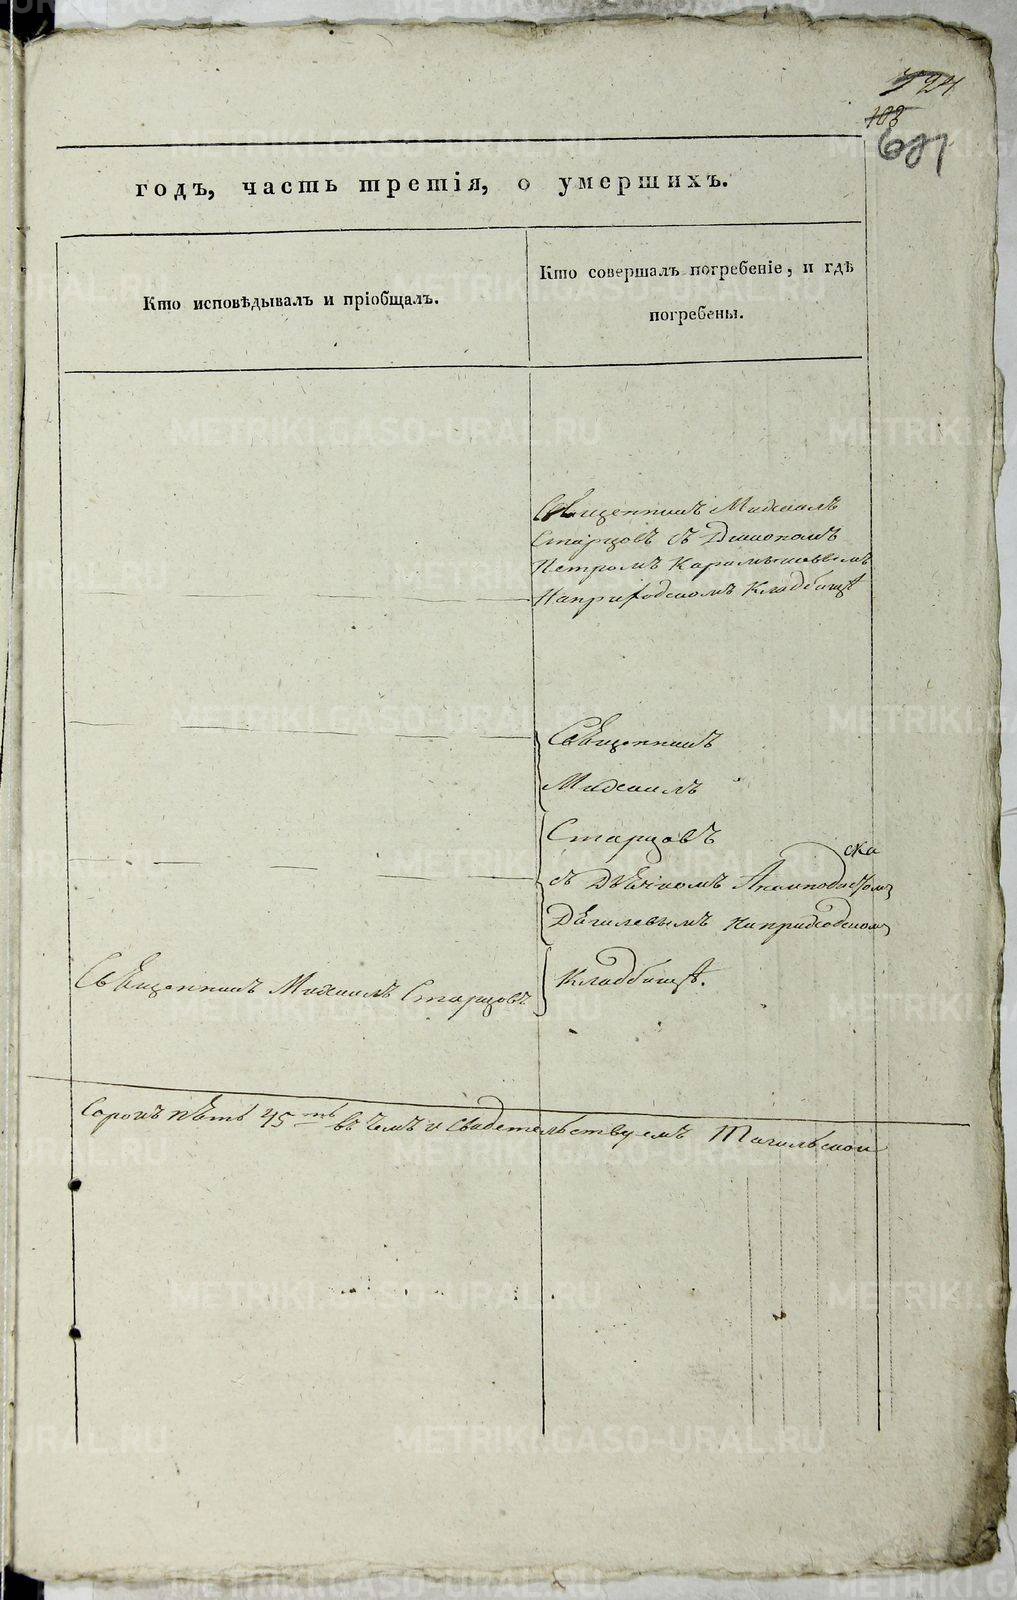 724
103
681
годъ, часть третія, о умершихъ.
Кто исповѣдывалъ и пріобщалъ.
Кто совершалъ погребеніе, и гдѣ
погребены.
Священникъ Михаилъ
Старцовъ съ Діакономъ
Петромъ
Наприходскомъ Кладбищѣ
Священникъ
Михаилъ
Старцовъ
съ Дьячкомъ
Наприходскомъ
Кладбищѣ.
Священникъ Михаилъ Старцовъ
Сорокъ пѣть 45 въ чемъ и свидетельствуемъ Тагильской
METRIKI.GASO-URAL.RU